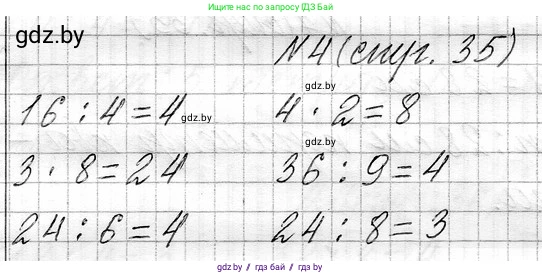 Пишите нас по запросу ГДЗ Бай
gdz.by
№4 (стр. 35)
16 : 4 = 4 gdz.by
gdz.by
4 · 2 = 8
gdz.by
3 · 8 = 24 36 : 9 = 4
24 : 6 = 4 24 : 8 = 3
gdz.by / гдз бай / gdz.by